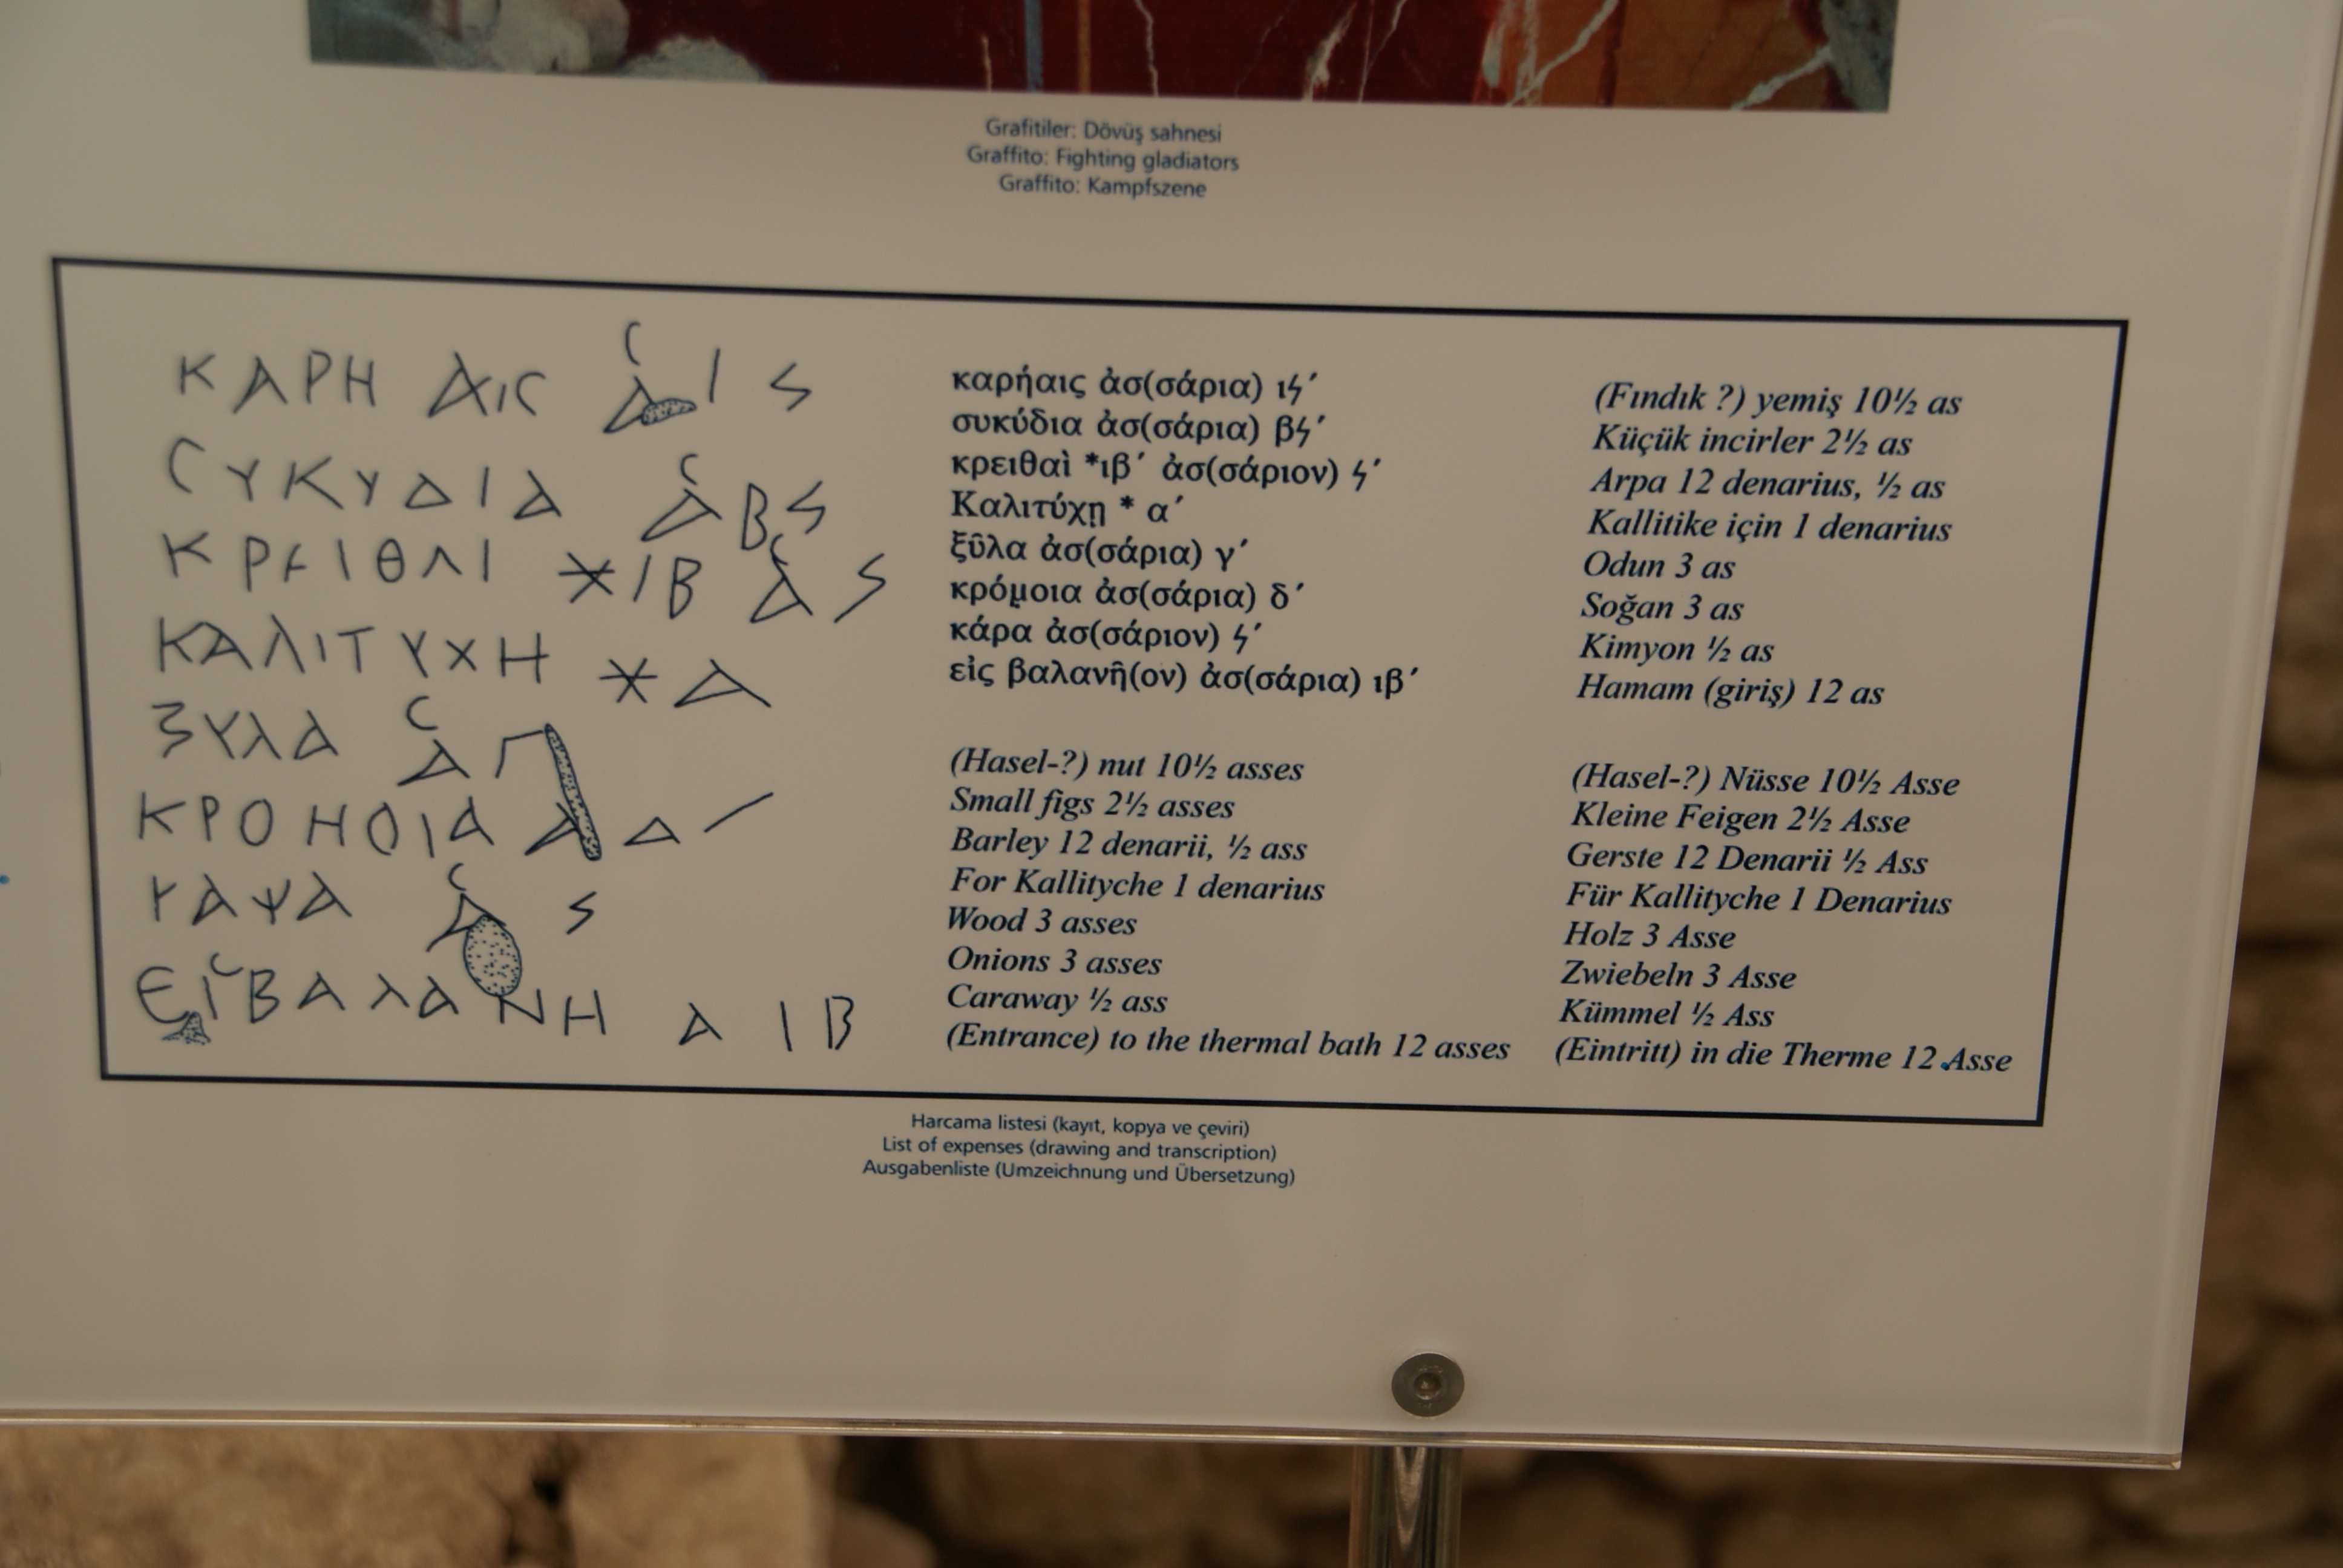 Grafitiler: Dövüş sahnesi
Graffito: Fighting gladiators
Graffito: Kampfszene
ΚΑΡΗ ΑΙϹ Α͑ Ι S
ϹΥΚΥΔΙΑ Α͑ Β S
ΚΡΕΙΘΛΙ Ӿ ΙΒ Α͑ S
ΚΑΛΙΤΥΧΗ Ӿ Α
ΞΥΛΑ Α͑ Γ
ΚΡΟΗΟΙΑ Α Δ ⁄
ΕΙϹ ΒΑΛΑΝΗ Α ΙΒ
καρήαις ἀσ(σάρια) ιϟ´
συκύδια ἀσ(σάρια) βϟ´
κρειθαὶ *ιβ´ ἀσ(σάριον) ϟ´
Καλιτύχῃ * α´
ξῦλα ἀσ(σάρια) γ´
κρόμ̣οια ἀσ(σάρια) δ´
κάρα ἀσ(σάριον) ϟ´
εἰς βαλανῆ(ον) ἀσ(σάρια) ιβ´
(Fındık ?) yemiş 10½ as
Küçük incirler 2½ as
Arpa 12 denarius, ½ as
Kallitike için 1 denarius
Odun 3 as
Soğan 3 as
Kimyon ½ as
Hamam (giriş) 12 as
(Hasel-?) nut 10½ asses
Small figs 2½ asses
Barley 12 denarii, ½ ass
For Kallityche 1 denarius
Wood 3 asses
Onions 3 asses
Caraway ½ ass
(Entrance) to the thermal bath 12 asses
(Hasel-?) Nüsse 10½ Asse
Kleine Feigen 2½ Asse
Gerste 12 Denarii ½ Ass
Für Kallityche 1 Denarius
Holz 3 Asse
Zwiebeln 3 Asse
Kümmel ½ Ass
(Eintritt) in die Therme 12 Asse
Harcama listesi (kayıt, kopya ve çeviri)
List of expenses (drawing and transcription)
Ausgabenliste (Umzeichnung und Übersetzung)